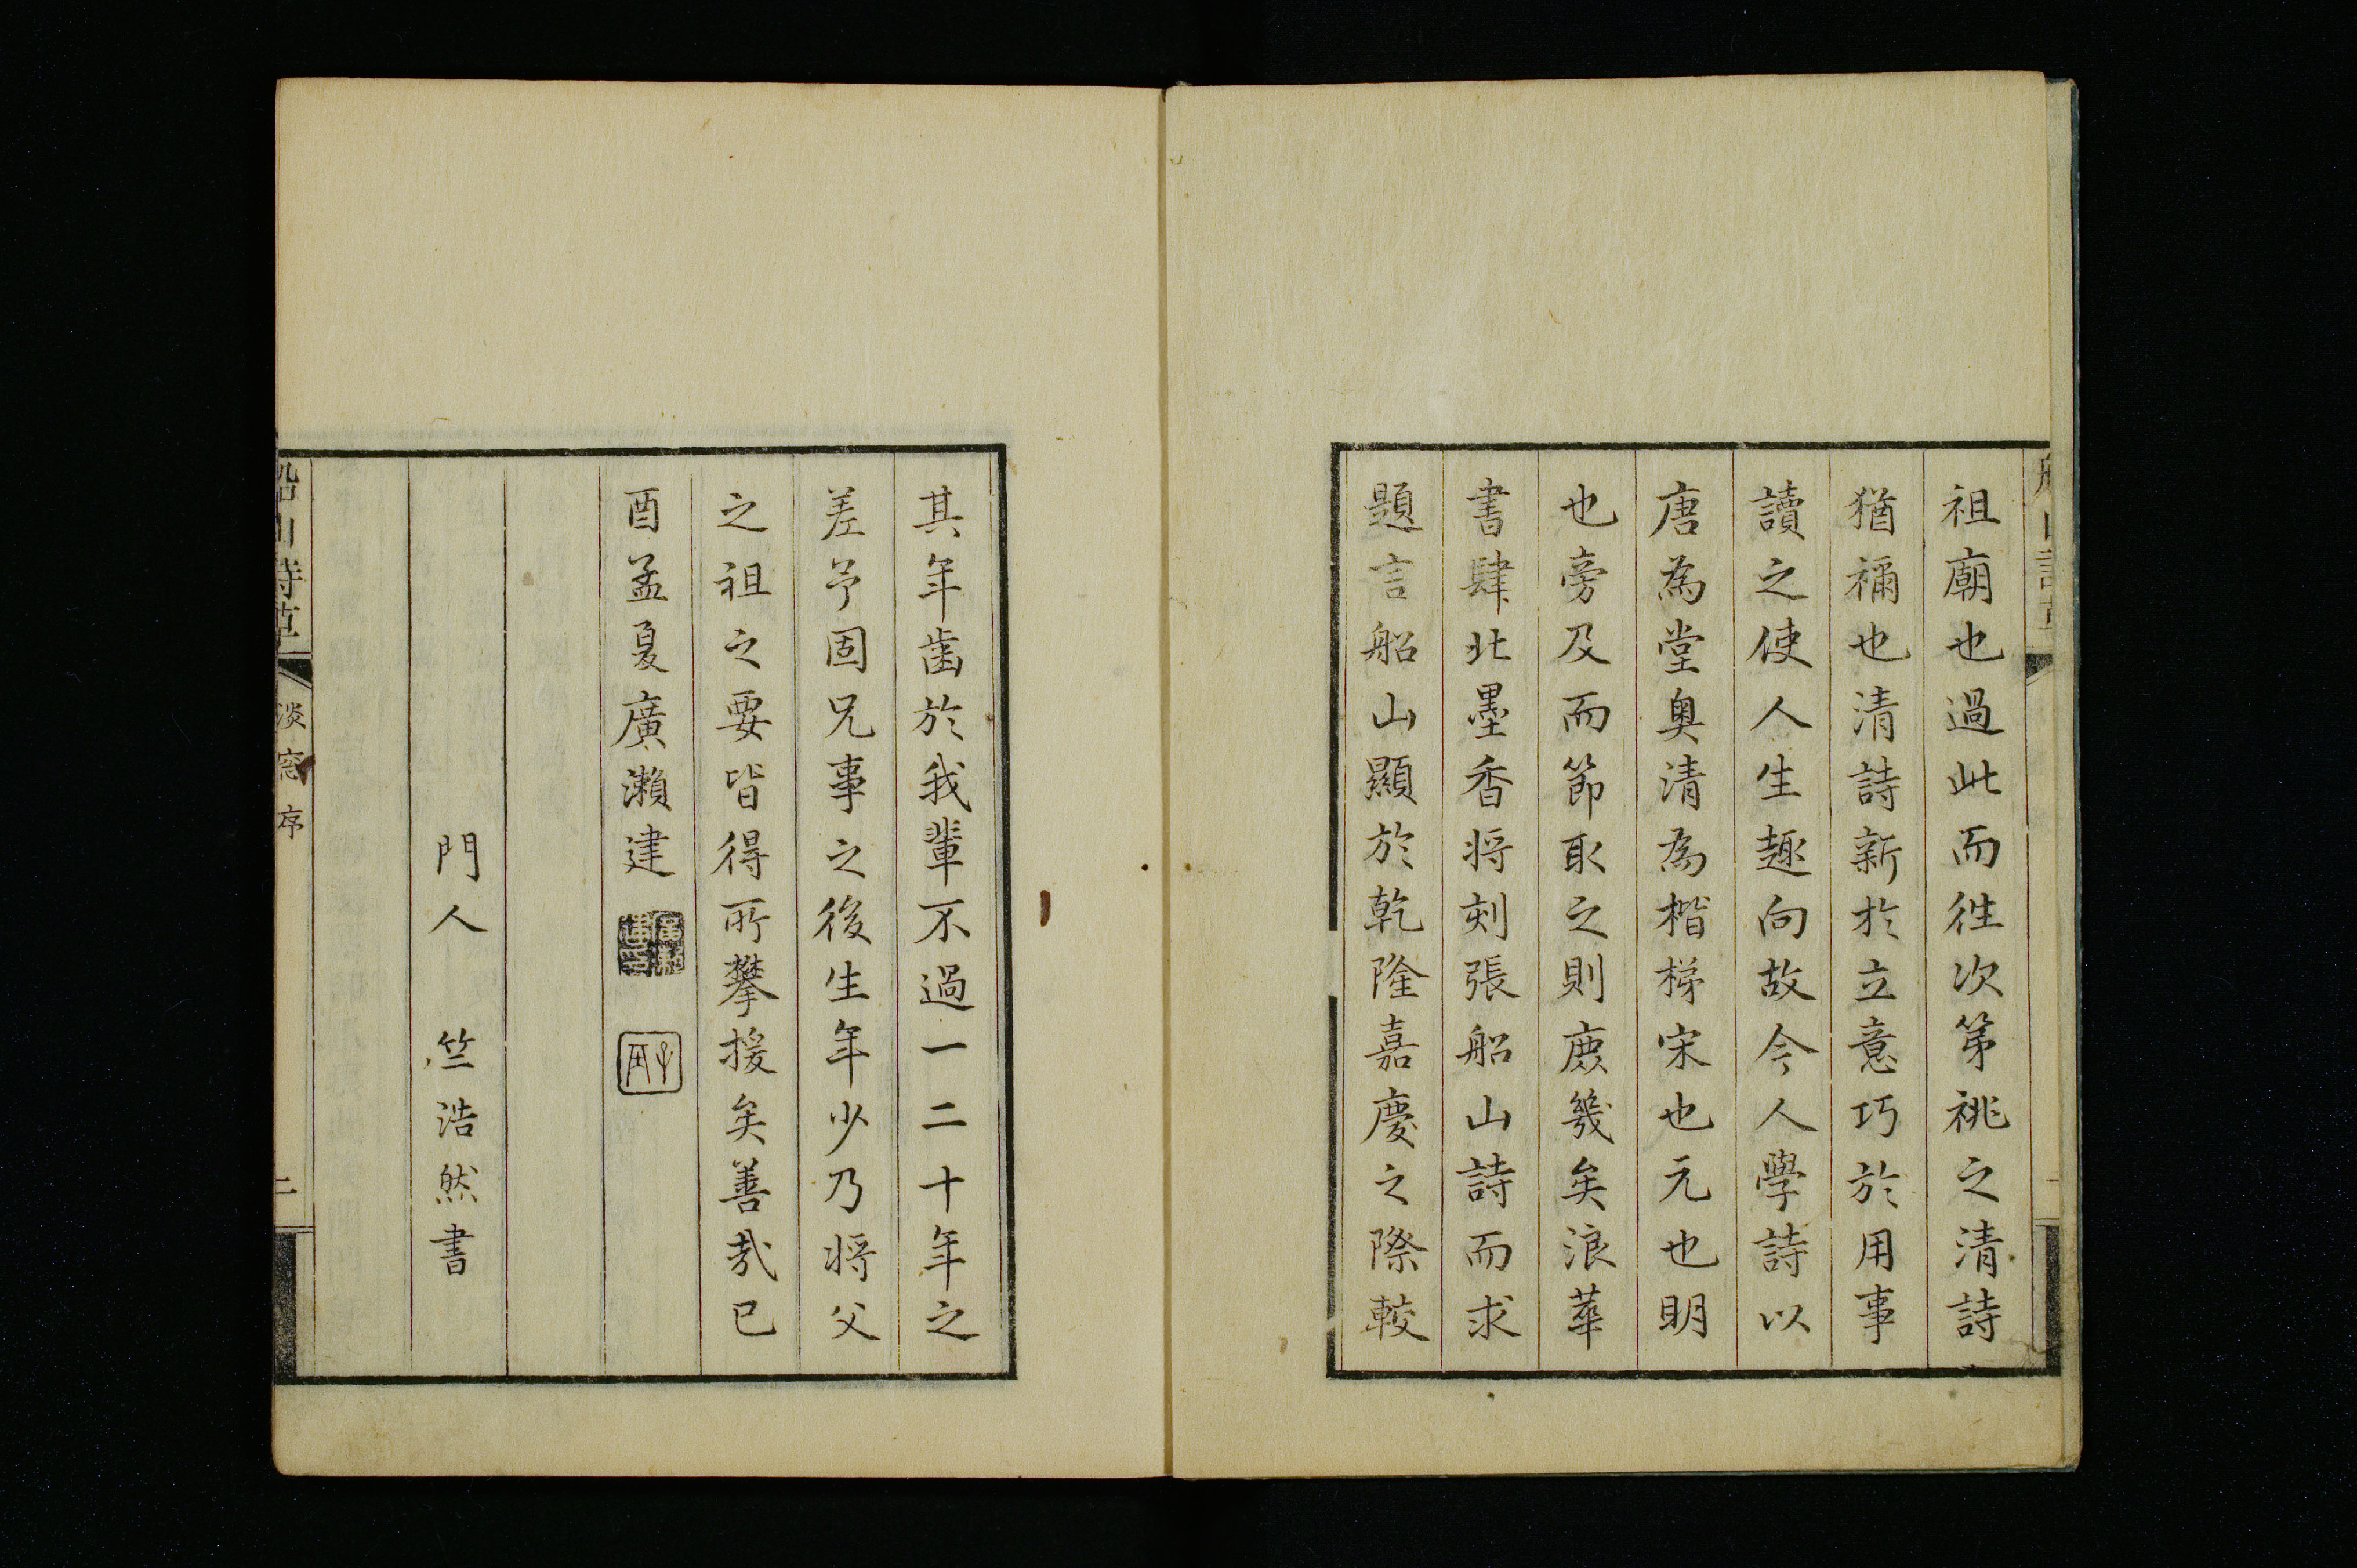 祖廟也過此而往次第祧之清詩
猶禰也清詩新於立意巧於用事
讀之使人生趣向故今人學詩以
唐為堂奥清為楷梯宋也元也明
也旁及而節取之則庻幾矣浪華
書肆北墨香将刻張船山詩而求
題言船山顯於乾隆嘉慶之際較
其年歯於我輩不過一二十年之
差予固兄事之後生年少乃将父
之祖之要皆得所攀援矣善哉已
酉孟夏廣瀬建
門人　竺浩然書
船山詩草　淡窓序　二